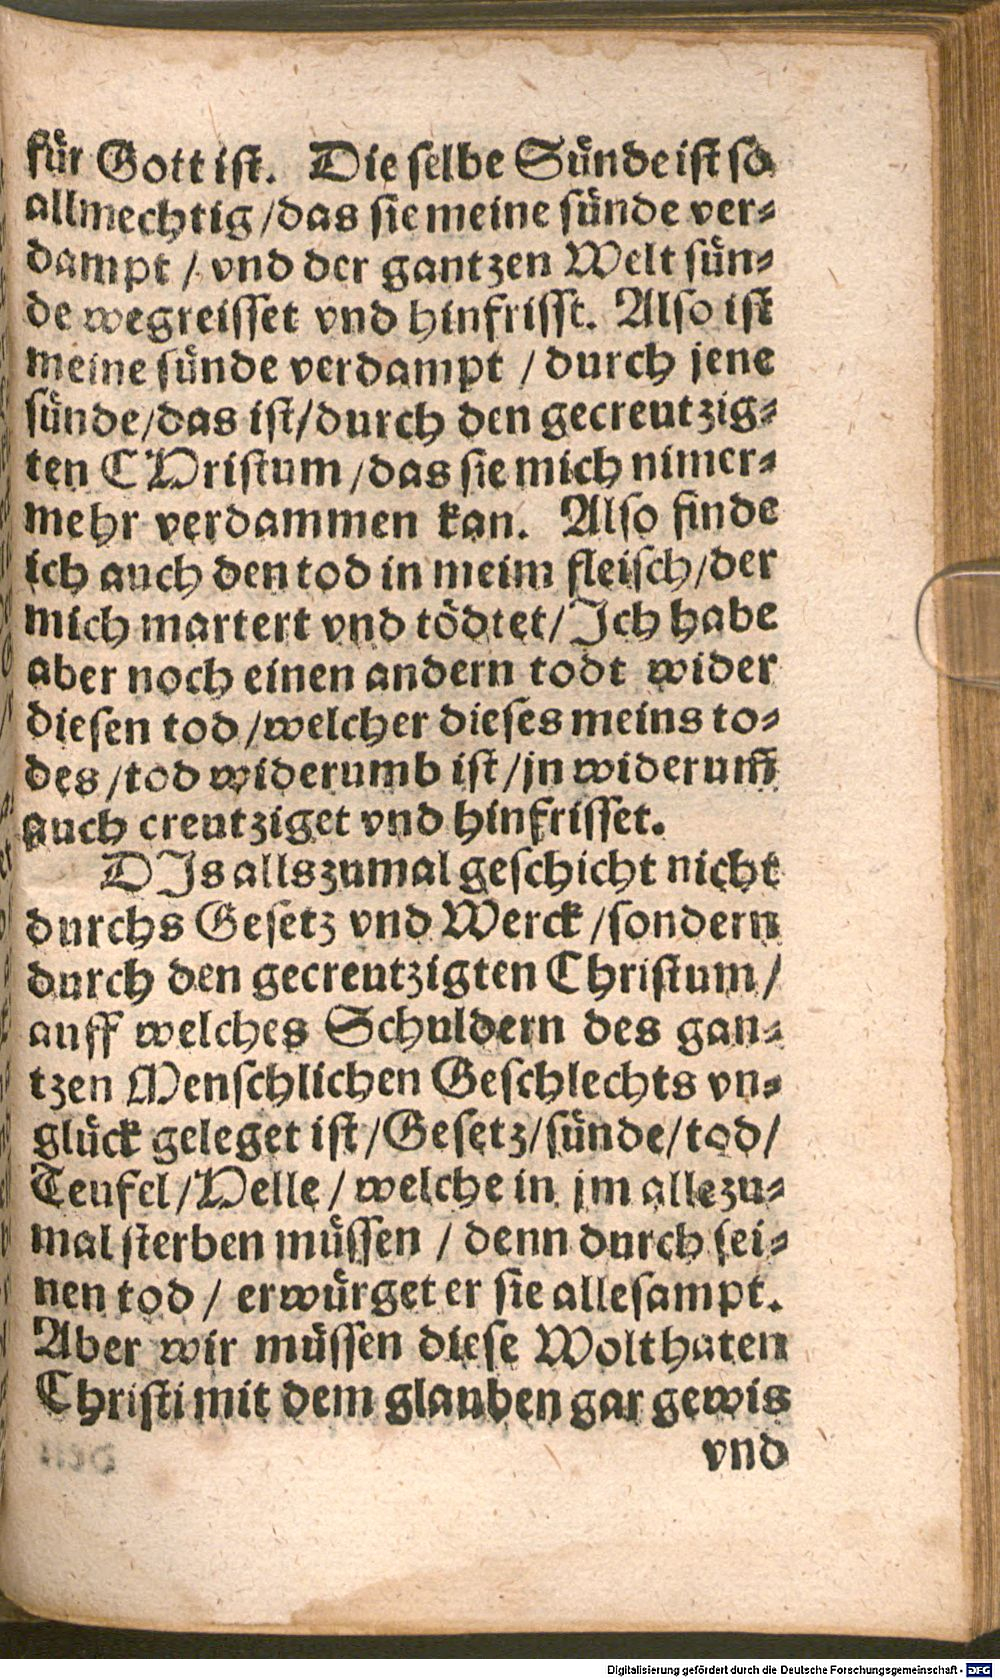 für Gott ist. Die selbe Sünde ist so
allmechtig /das sie meine sünde ver⸗
dampt / vnd der gantzen Welt sün⸗
de wegreisset vnd hinfrisst. Also ist
meine sünde verdampt / durch jene
sünde/das ist/durch den gecreutzig⸗
ten CHristum /das sie mich nimer⸗
mehr verdammen kan. Also finde
ich auch den tod in meim fleisch/der
mich martert vnd tödtet/Ich habe
aber noch einen andern todt wider
diesen tod /welcher dieses meins to⸗
des /tod widerumb ist /jn widerum̃
auch creutziget vnd hinfrisset.
DIs allszumal geschicht nicht
durchs Gesetz vnd Werck /sondern
durch den gecreutzigten Christum /
auff welches Schuldern des gan⸗
tzen Menschlichen Geschlechts vn⸗
glück geleget ist /Gesetz/sünde/tod/
Teufel /Helle / welche in jm allezu⸗
mal sterben müssen / denn durch sei⸗
nen tod / erwürget er sie allesampt.
Aber wir müssen diese Wolthaten
Christi mit dem glauben gar gewis
vnd
Digitalisierung gefördert durch die Deutsche Forschungsgemeinschaft - DFG